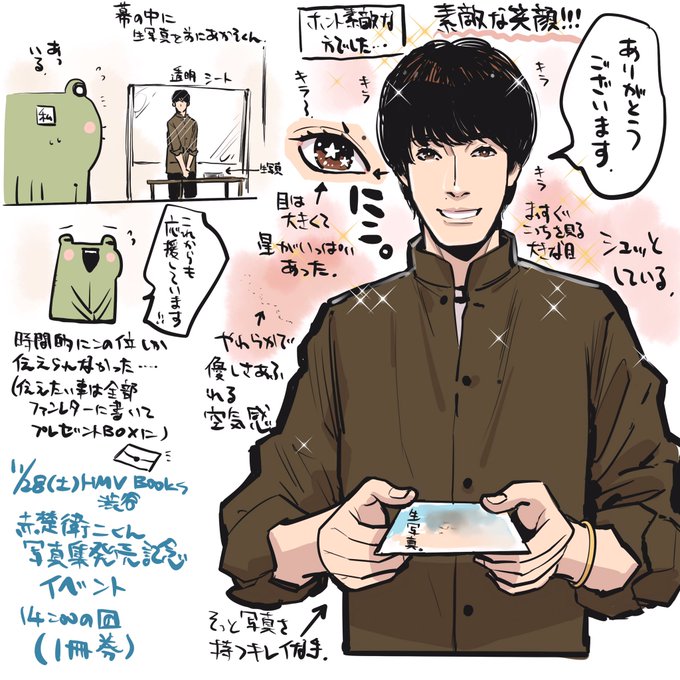 幕の中に
生写真と共にあかそくん。
あっ
いる。
私
透明シート
生写真
ホント素敵な
方でした…
素敵な笑顔!!!
ありがとう
ございます。
キラ〜
キラ
キラ
キラ
目は
大きくて
星がいっぱい
あった。
ニコ。
まっすぐ
こっちを見る
大きな目
シュッと
している。
これからも
応援しています!!
やわらかで
優しさあふ
れる
空気感
時間的にこの位しか
伝えらんなかった….
(伝えたい事は全部
ファンレターに書いて
プレゼントBOXに)
11/28(土)HMV BOOKS
渋谷
赤楚衛二くん
写真集発売記念
イベント
14:00の回
(1冊券)
生写真。
そっと写真を
持つキレイな手。